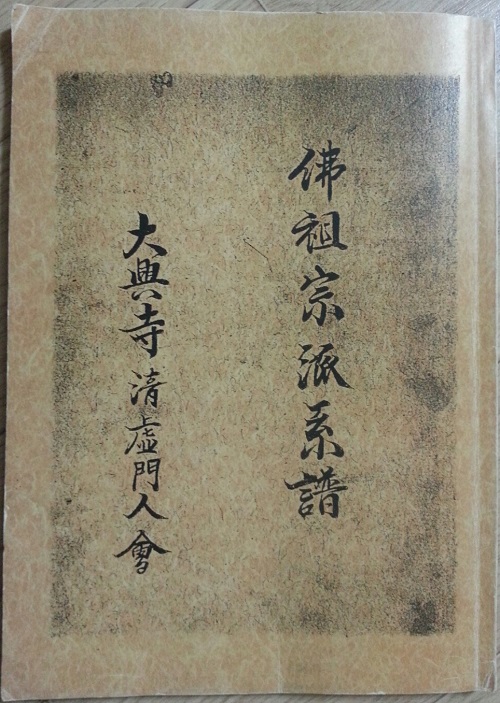 佛祖宗派系譜
大興寺清虛門人會